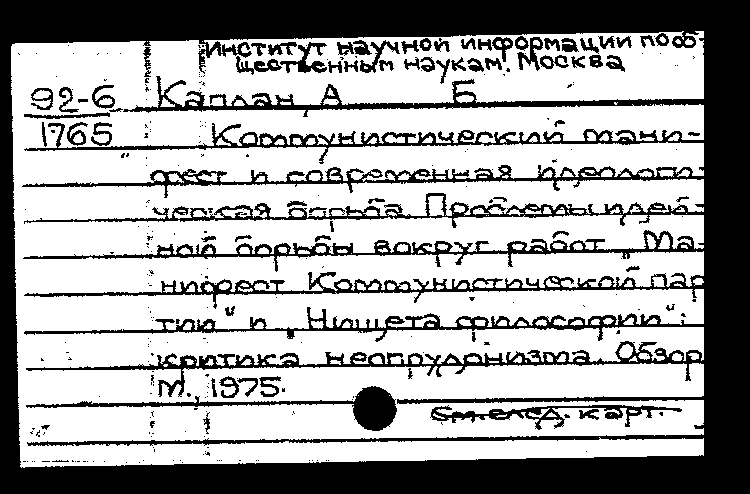 Институт научной информации по об-
щественным наукам. Москва
92-6 Каплан, А Б
1765 Коммунистический мани-
фест и современная идеологи-
ческая борьба. Проблемы идей-
ной борьбы вокруг работ „Ма-
нифест Коммунистической пар
тии" и „Нищета философии":
критика неопрудонизма. Обзор
М., 1975.
См. след. карт.